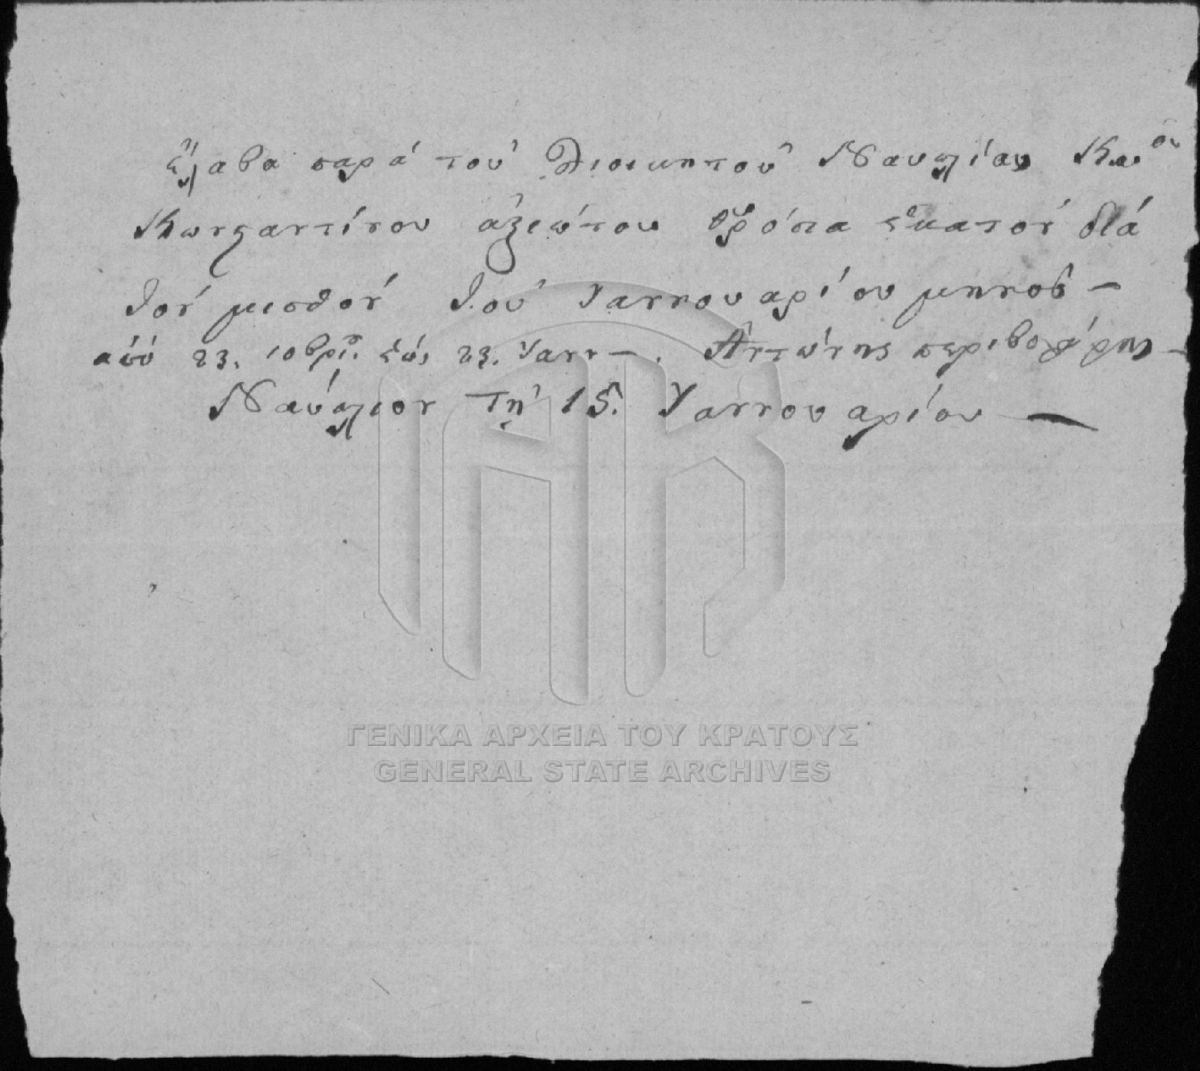 Ἔλαβα παρά τοῦ Διοικητοῦ Ναυπλίας Κυ<sup>ου</sup>
Κωνσταντίνου ἀξιώτου γρόσια ἑκατόν διά
τόν μισθόν τοῦ Ἰαννουαρίου μηνός —
ἀπό 23. 10βρίου. ἕως 23. Ἰανν—. Ἀντώνης περιβολάρης —
Ναύπλιον τῇ 15. Ἰαννουαρίου —
ΓΕΝΙΚΑ ΑΡΧΕΙΑ ΤΟΥ ΚΡΑΤΟΥΣ
GENERAL STATE ARCHIVES